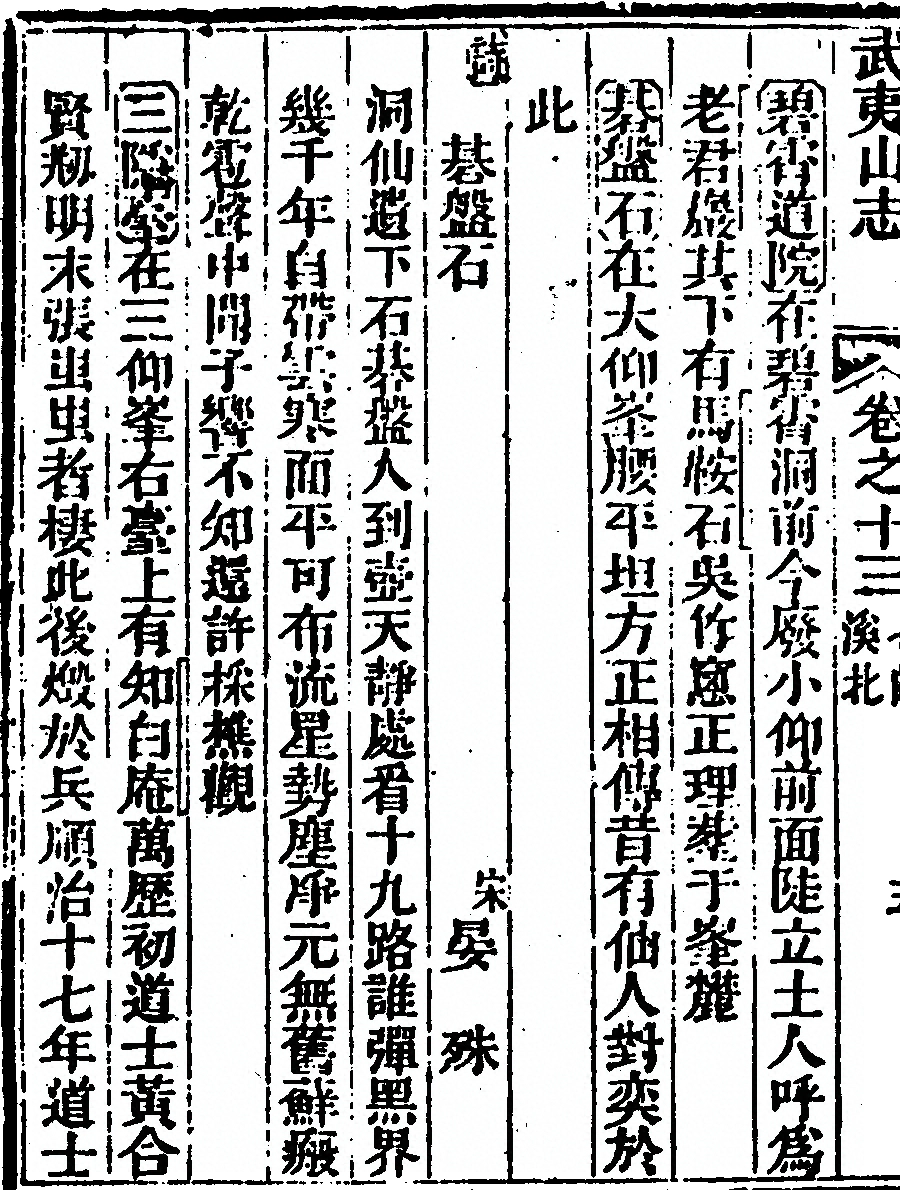 武夷山志
卷之十三
溪北
碧霄道院在碧霄洞前今廢小仰前面陡立土人呼為
老君巖其下有馬鞍石吳作窻正理塟于峯麓
棊盤石在大仰峯腰平坦方正相傳昔有仙人對奕於
此
詩 棊盤石 宋晏殊
洞仙遺下石棊盤人到壺天靜處看十九路誰彈黑界
幾千年自帶雲寒面平可布流星勢塵淨元無舊蘚瘢
乾雹聲中閒子響不知還許採樵觀
三隱臺在三仰峯右臺上有知白庵萬歷初道士黃合
賢剏明末張蚩蚩者棲此後燬於兵順治十七年道士